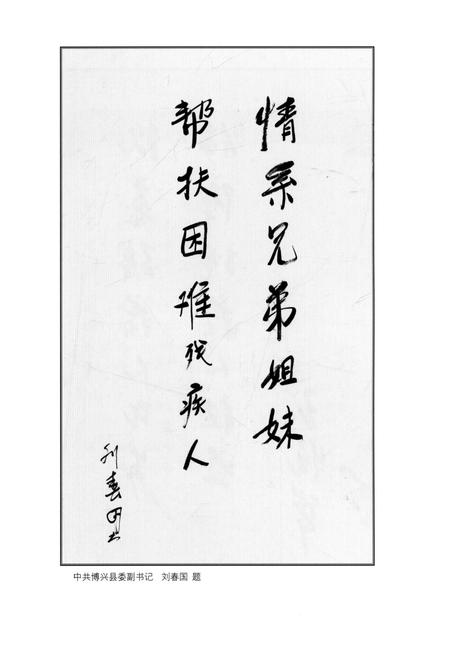 情系兄弟姐妹
帮扶困难残疾人
刘春国
中共博兴县委副书记 刘春国 题